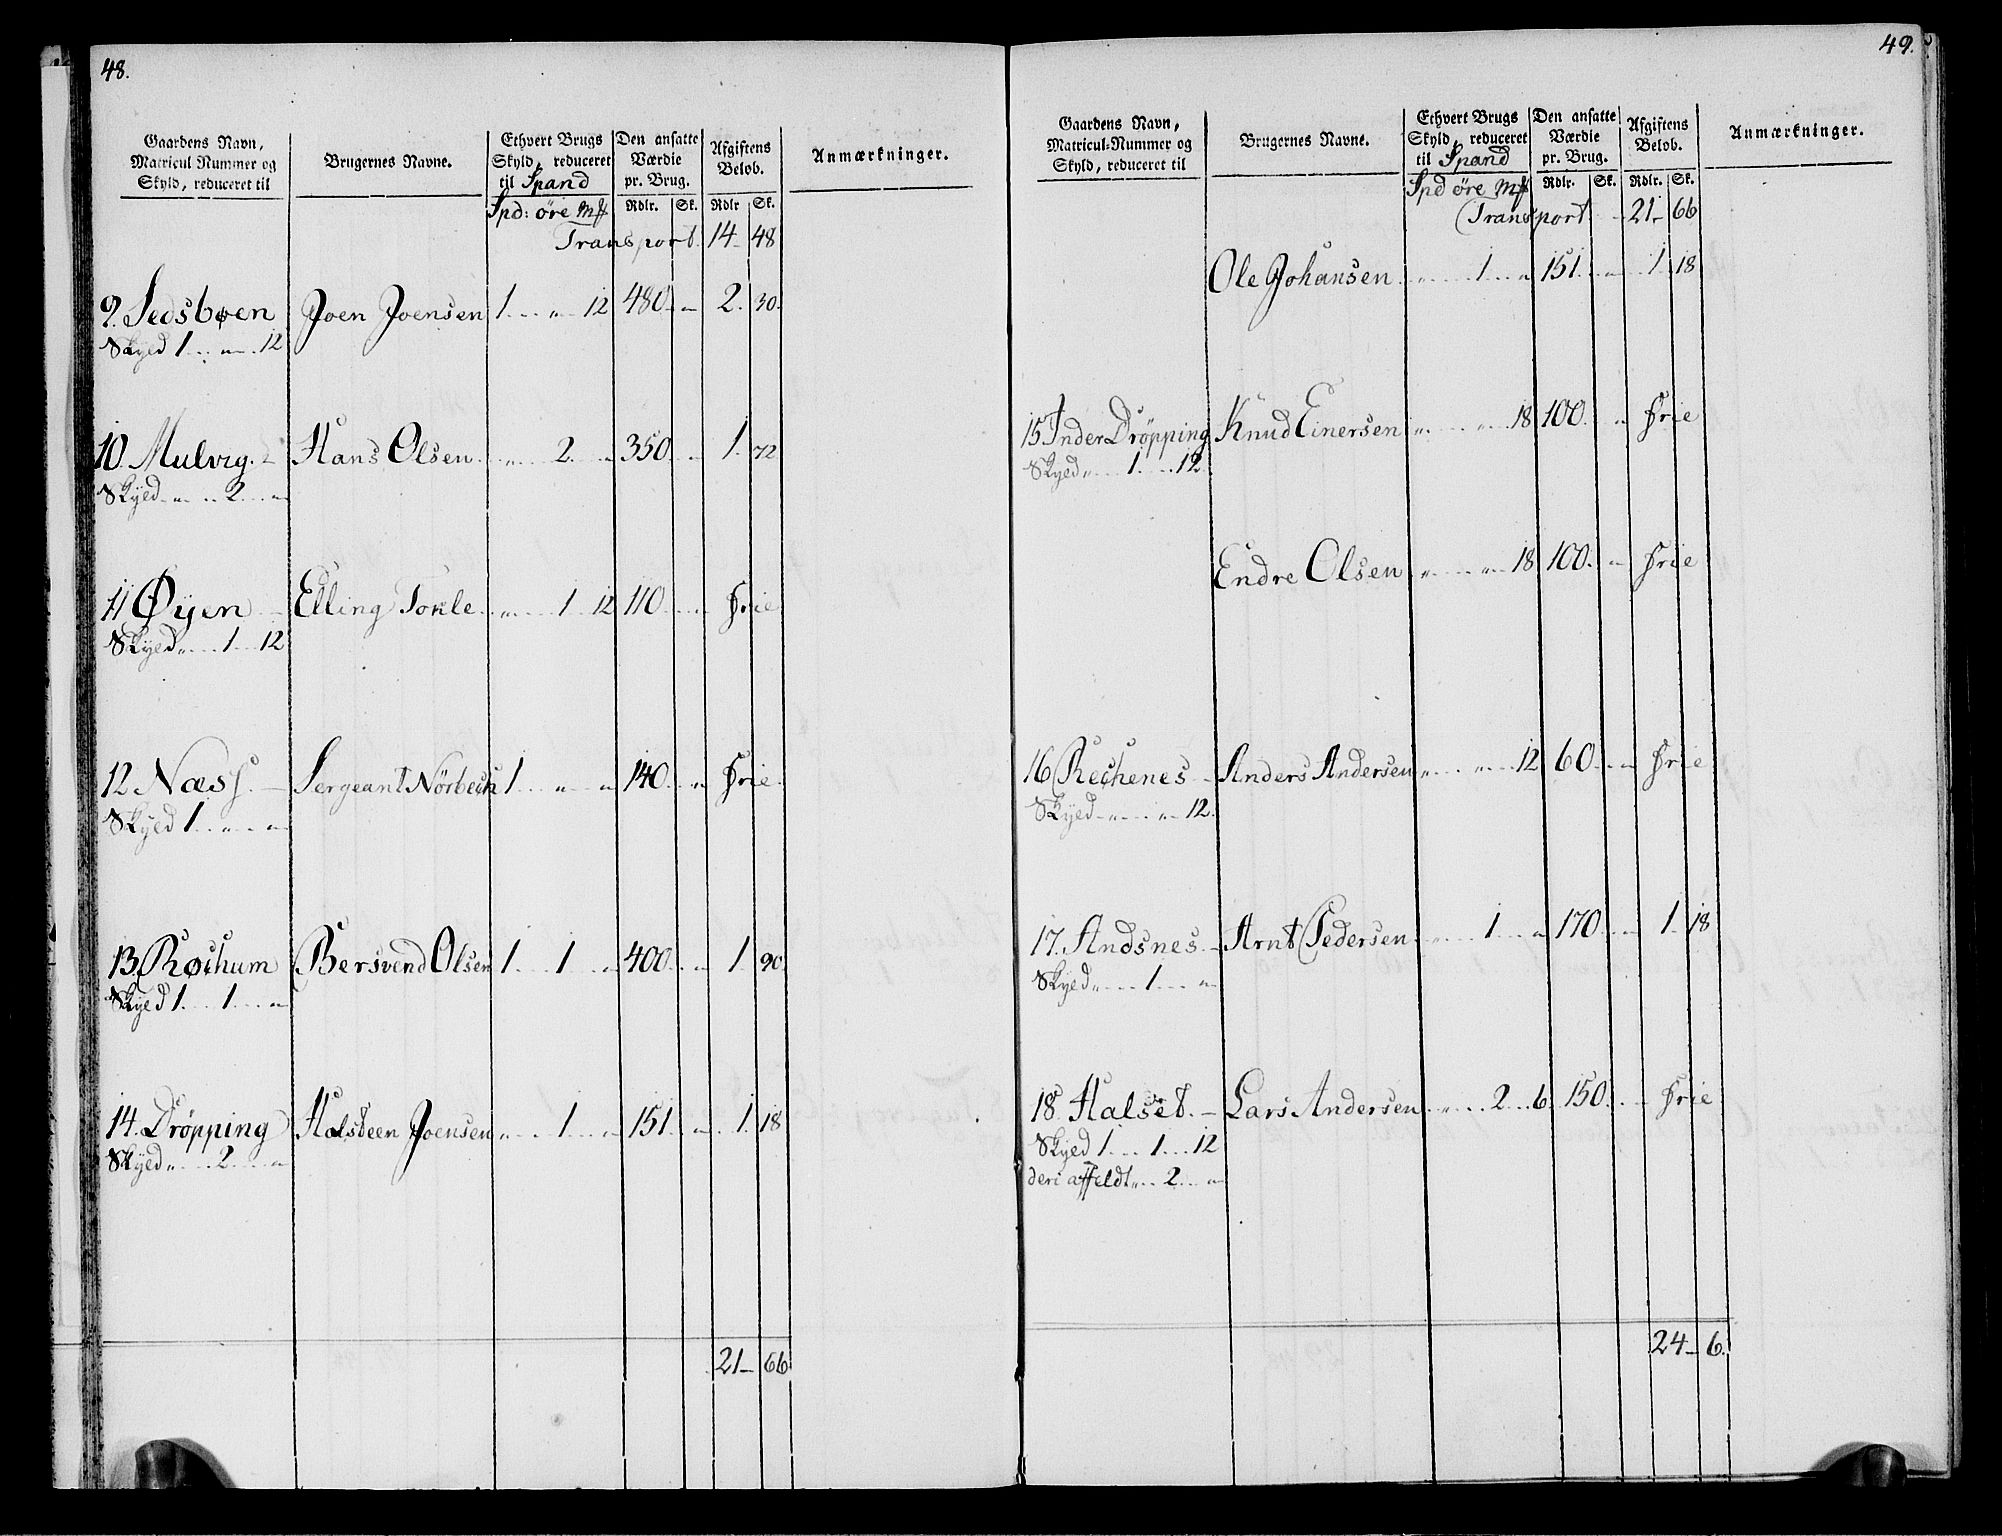 48.
Gaardens Navn, Matricul Nummer og Skyld, reduceret til | Brugernes Navne. | Ethvert Brugs Skyld, reduceret til Spand | Den ansatte Værdie pr. Brug. | Afgiftens Beløb. | Anmærkninger.
Spd: öre Mk | Rdlr. | Sk. | Rdlr | Sk.
Transport. 14 48
9. Sedsbøen Joen Joensen 1 .. " .. 12 480 " 2. 30.
Skyed 1 .. " .. 12
10. Mulvig. Hans Olsen " 2. " 350 " 1. 72
Skyed " .. 2 .. "
11 Øyen Elling Tonle " 1 12 110 " Frie
Skyed " 1 12
12 Næss. Sergeant Nörbech 1 " " 140 " Frie
Skyed 1 .. " .. "
13. Røchum Bersvend Olsen 1 1 " 400 " 1. 90.
Skyed 1 .. 1 .. "
14. Dröpping Halsteen Joensen " 1 " 151 " 1. 18
Skyed " .. 2 .. "
21 66
49.
Gaardens Navn, Matricul-Nummer og Skyld, reduceret til | Brugernes Navne. | Ethvert Brugs Skyld, reduceret til Spand | Den ansatte Værdie pr. Brug. | Afgiftens Beløb. | Anmærkninger.
Spd öre Mk | Rdlr. | Sk. | Rdlr. | Sk.
Transport 21 66
Ole Johansen " 1 " 151. " 1. 18
15. Inder Dröpping Knud Einersen " " 18 100. " Frie
Skyed " 1 .. 12
Endre Olsen " " 18 100. " Frie
16 Rechenes Anders Andersen " " 12 60 " Frie
Skyed " .. " 12.
17. Andsnes. Arnt Pedersen " 1 " 170 " 1. 18
Skyed " 1 .. "
18. Halset. Lars Andersen " 2 6 150. " Frie
Skyed 1 .. 1 .. 12
deri affeldt " .. 2 .. "
24 6.